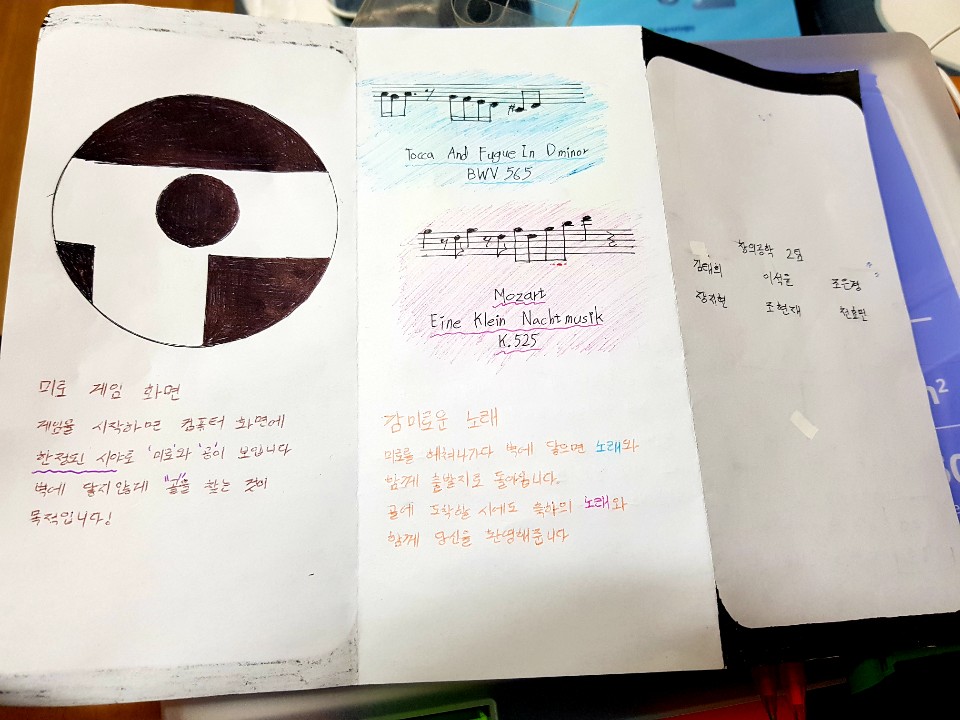 미로 게임 화면
게임을 시작하면 컴퓨터 화면에
한정된 시야로 '미로'와 '공'이 보입니다
벽에 닿지않게 "끝"을 찾는 것이
목적입니다!
Tocca And Fugue In D minor
BWV 565
Mozart
Eine Klein Nachtmusik
K.525
감미로운 노래
미로를 헤쳐나가다 벽에 닿으면 노래와
함께 출발지로 돌아옵니다.
끝에 도착할 시에도 축하의 노래와
함께 당신을 환영해줍니다
창의공학 2조
김태희 이석율 조은경
장지현 조현재